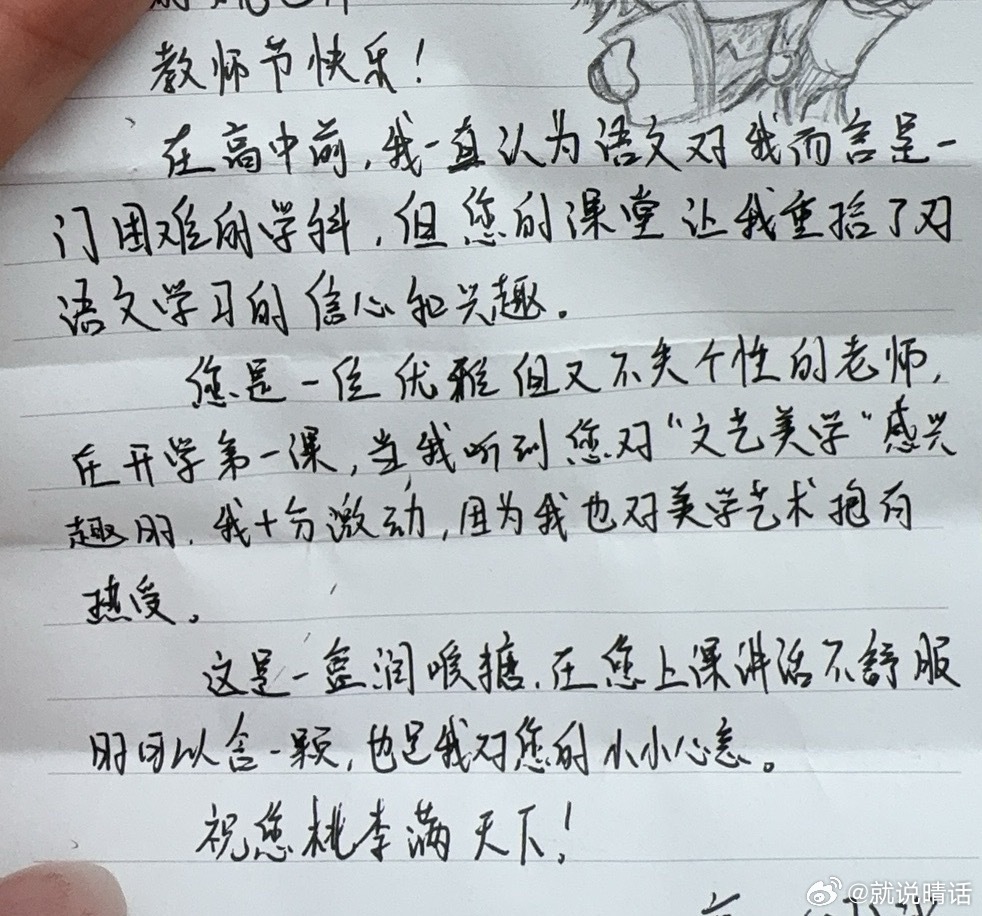 教师节快乐！
在高中前，我一直认为语文对我而言是一
门困难的学科，但您的课堂让我重拾了对
语文学习的信心和兴趣。
您是一位优雅但又不失个性的老师，
在开学第一课，当我听到您对“文艺美学”感兴
趣时，我十分激动，因为我也对美学艺术抱有
热爱。
这是一盒润喉糖，在您上课讲话不舒服
时可以含一颗，也是我对您的小小心意。
祝您桃李满天下！
@就说晴话